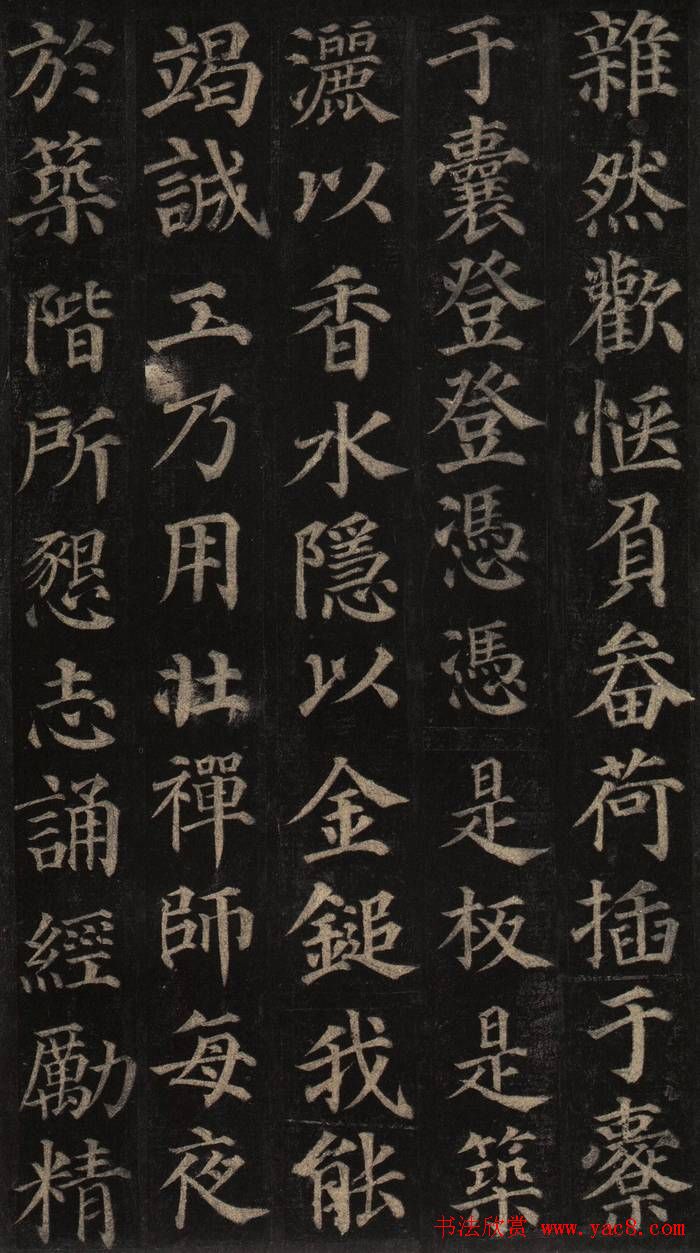 雜然歡愜負畚荷插于橐
于囊登登憑憑是板是築
灑以香水隱以金鎚我能
竭誠工乃用壯禪師每夜
於築階所懇志誦經勵精
书法欣赏 www.yac8.com